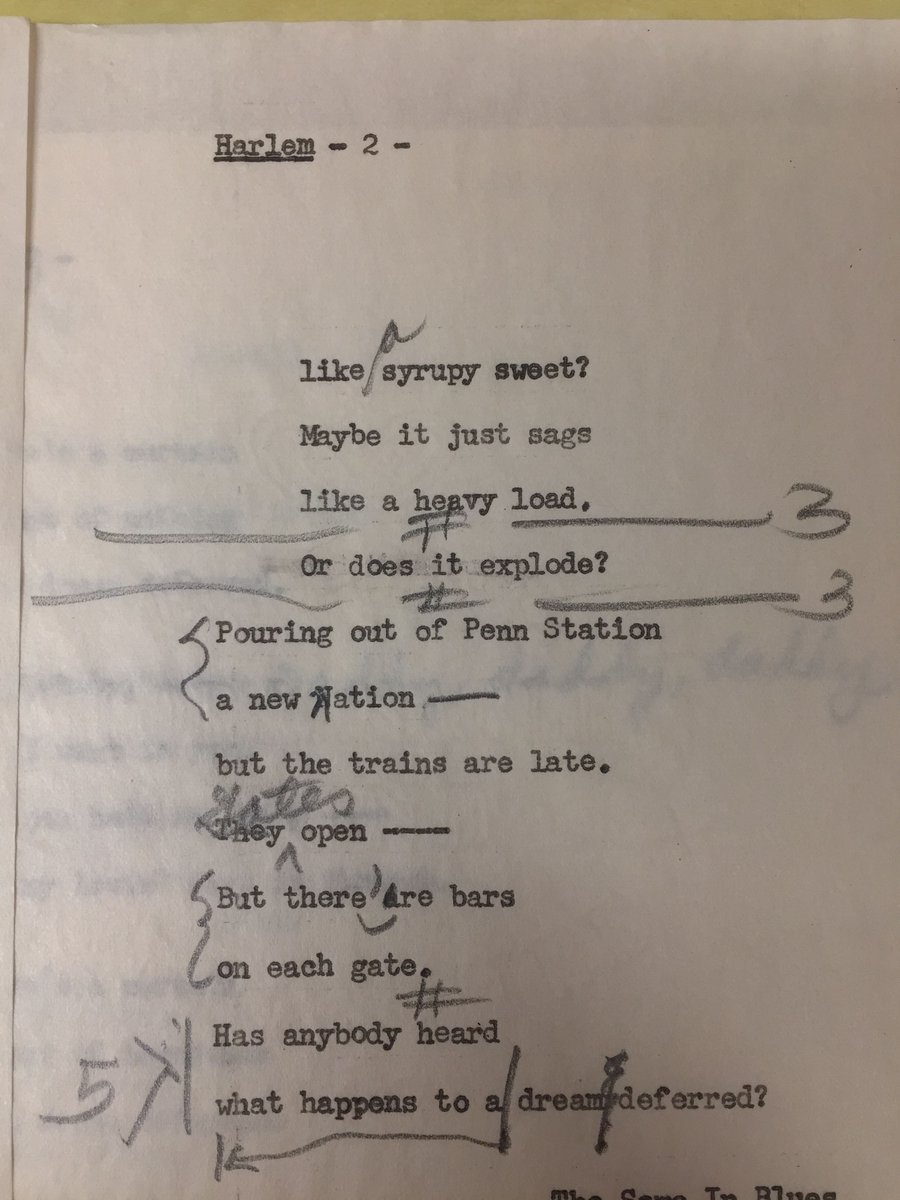 Harlem - 2 -
a
like syrupy sweet?
Maybe it just sags
like a heavy load.
#
3
Or does it explode?
#
3
Pouring out of Penn Station
a new Nation —
but the trains are late.
Gates
They open —
But there are bars
on each gate.
#
Has anybody heard
5
what happens to a dream deferred?
The Same In Blues